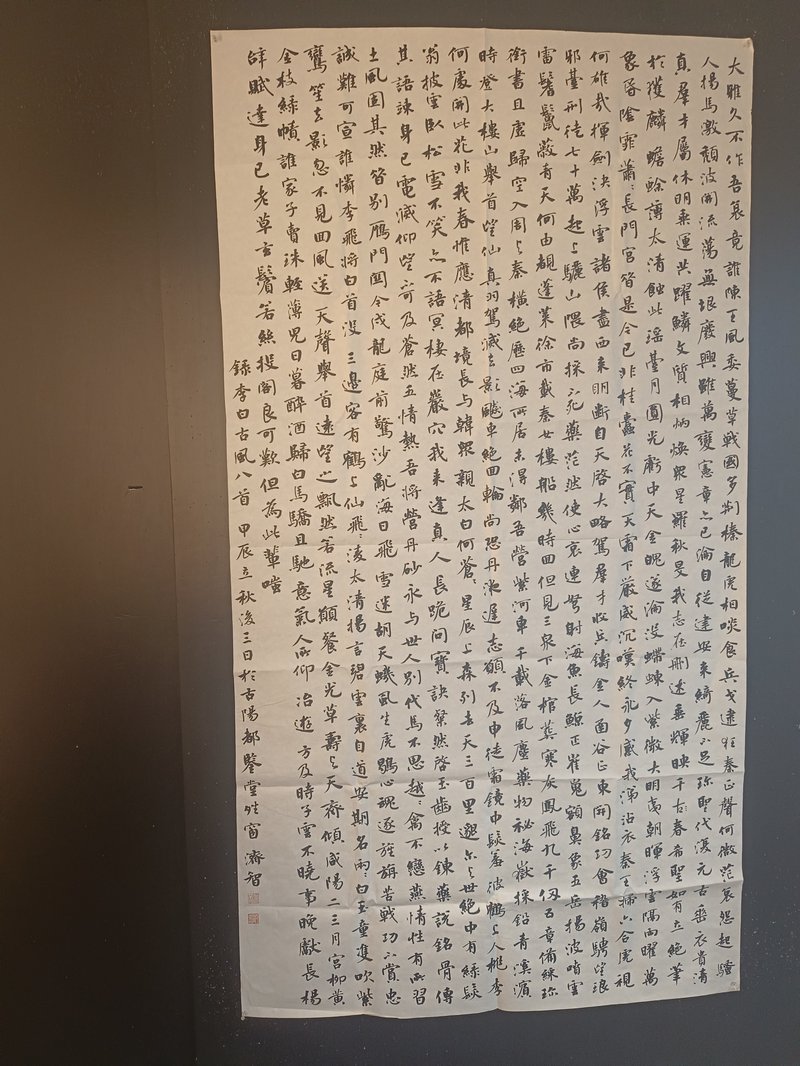 大雅久不作吾衰竟誰陳王風委蔓草戰國多荊榛龍虎相啖食兵戈逮狂秦正聲何微茫哀怨起騷
人揚馬激頹波開流蕩無垠廢興雖萬變憲章亦已淪自從建安來綺麗不足珍聖代復元古垂衣貴清
真群才屬休明乘運共躍鱗文質相炳煥眾星羅秋旻我志在刪述垂輝映千古春希聖如有立絕筆
於獲麟蟾蜍薄太清蝕此瑤臺月圓光虧中天金魄遂淪沒螮蝀入紫微大明夷朝暉浮雲隔兩曜萬
象昏陰霏蕭々長門宮昔是今已非桂蠹花不實天霜下嚴威沉嘆終永夕感我涕沾衣秦王掃六合虎視
何雄哉揮劍決浮雲諸侯盡西來明斷自天啓大略駕群才收兵鑄金人函谷正東開銘功會稽嶺騁望琅
邪臺刑徒七十萬起土驪山隈尚採不死藥茫然使心哀連弩射海魚長鯨正崔嵬額鼻象五岳揚波噴雲
雷鬐鬣蔽青天何由覩蓬萊徐市載秦女樓船幾時回但見三泉下金棺葬寒灰鳳飛九千仞五章備綵珍
銜書且虛歸空入周與秦橫絕歷四海所居未得鄰吾營紫河車千載落風塵藥物秘海嶽採鉛青溪濱
時登大樓山舉首望仙真羽駕滅去影飇車絕回輪尚恐丹液遲志願不及申徒霜鏡中髮羞彼鶴上人桃李
何處開此花非我春惟應清都境長與韓眾親太白何蒼々星辰上森列去天三百里邈爾與世絕中有綠髮
翁披雲臥松雪不笑亦不語冥棲在巖穴我來逢真人長跪問寶訣粲然啓玉齒授以鍊藥說銘骨傳
其語竦身已電滅仰望不可及蒼然五情熱吾將營丹砂永與世人別代馬不思越々禽不戀燕情性有所習
土風固其然昔別雁門關今戍龍庭前驚沙亂海日飛雪迷胡天蟣虱生虎鶡心魂逐旌旃苦戰功不賞忠
誠難可宣誰憐李飛將白首沒三邊客有鶴上仙飛々凌太清揚言碧雲裏自道安期名兩々白玉童雙吹紫
鸞笙去影忽不見回風送天聲舉首遠望之飄然若流星願餐金光草壽與天齊傾咸陽二三月宮柳黃
金枝綠幘誰家子賣珠輕薄兒日暮醉酒歸白馬驕且馳意氣人所仰冶遊方及時子雲不曉事晚獻長楊
辭賦達身已老草玄鬢若絲投閣良可歎但為此輩嗤
錄李白古風八首 甲辰立秋後三日於古陽都鑒堂北窗 濟智